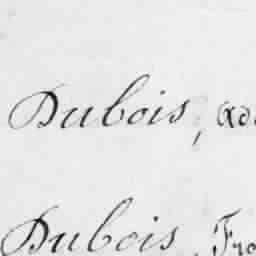 Dubois, ad
Dubois, Fra